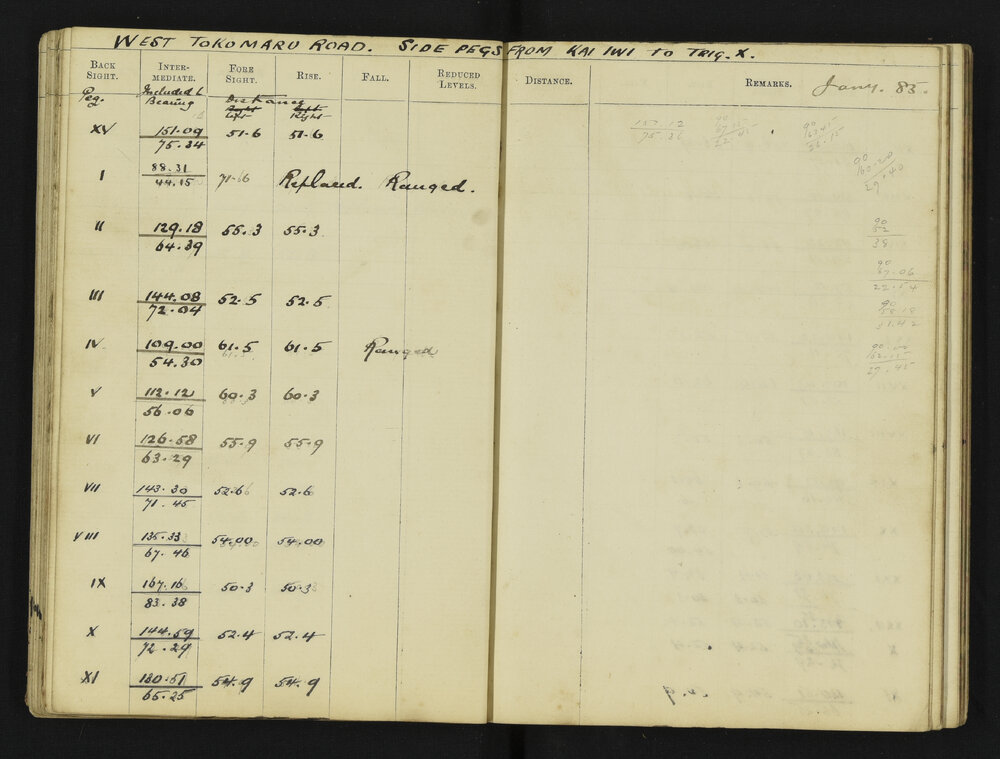 WEST TOKOMARU ROAD. SIDE PEGS FROM KAI IWI to TRIG. X.
BACK SIGHT. INTER-MEDIATE. FORE SIGHT. RISE. FALL. REDUCED LEVELS. DISTANCE. REMARKS. Jany. 83.
Peg. Included L Bearing Distance
Right Left Left Right
XV 151.09 51.6 51.6
75.34
I 88.31 71.66 Replaced. Ranged.
44.15
II 129.18 55.3 55.3
64.39
III 144.08 52.5 52.5
72.04
IV 109.00 61.5 61.5 Ranged
54.30
V 112.12 60.3 60.3
56.06
VI 126.58 55.9 55.9
63.29
VII 143.30 52.6 52.6
71.45
VIII 135.33 54.00 54.00
67.46
IX 167.16 50.3 50.3
83.38
X 144.59 52.4 52.4
72.29
XI 130.51 54.9 54.9
65.25
90
52
38
90
67.06
22.54
90
58.18
31.42